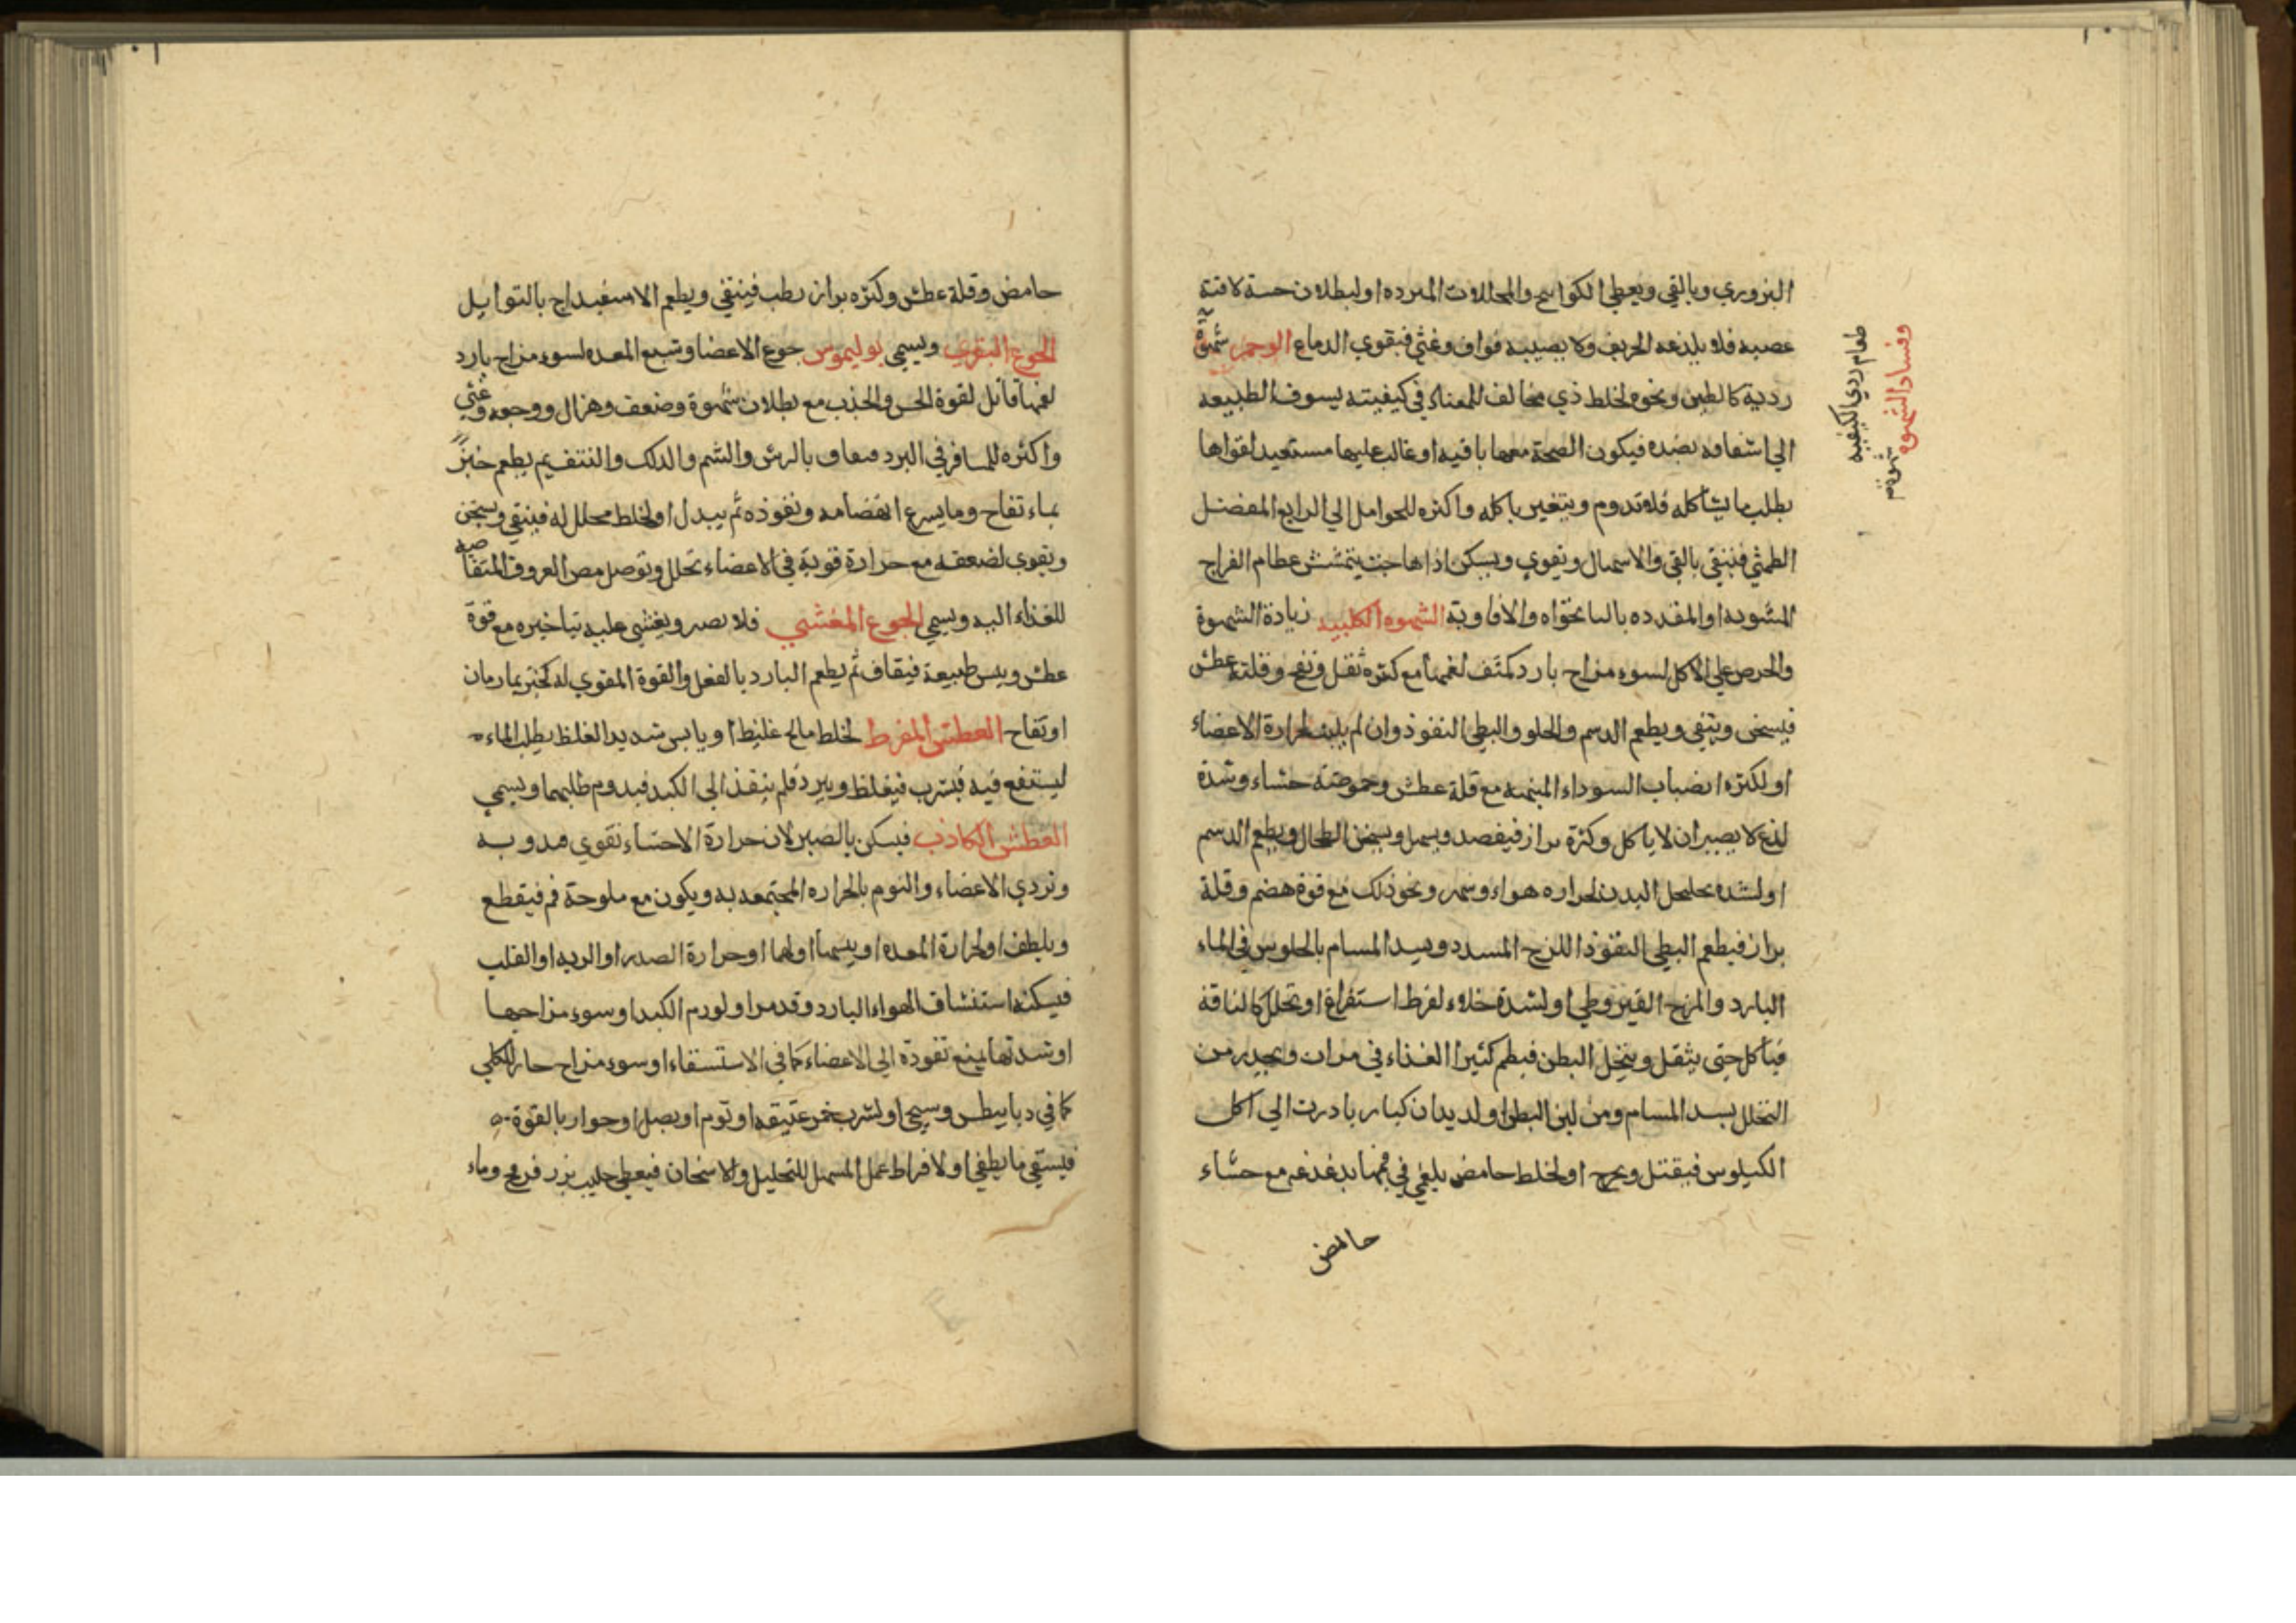 البزوري وبالقي ويعطي الكواميخ والمخللات المبرده او لبطلان حسه لافة
عصبه فلا يلذعه الحريف ولا يصيبه فواق وغثي فيقوي الدماغ الوحم شهوة
رديه كالطين ونحوه لخلط ذي مخالف للمعتاد في كيفيته يسوق الطبيعه
الي اشفاه بضده فيكون الصحة معها باقيه او غالب عليها مستعيد لقواها
يطلب ما يشاكله فلا تدوم ويتغير باكله واكثره للحوامل الي الرابع لفضل
الطمثي فينقي بالقي والاسهال ويقوي ويسكن اذا هاجت بتمشش عظام الفراج
المشويه او المقدده بالنانخواه والافاويه الشهوه الكلبيه زيادة الشهوة
والحرص علي الاكل لسوء مزاج بارد مكثف لفمها مع كثره ثقل ونفخ وقلة عطش
فيسخن وينقي ويطعم الدسم والحلو والبطي النفوذ وان لم يلبث لحرارة الاعضاء
او لكثره انصباب السوداء المنبهه مع قلة عطش وحموضة جشاء وشدة
لذع لا يصبر ان لا ياكل وكثرة براز فيفصد ويسهل ويسخن الطحال ويطعم الدسم
او لشده تخلخل البدن لحراره هواء وسهر ونحو ذلك مع قوة هضم وقلة
براز فيطعم البطي النفوذ اللزج المسدد ويسد المسام بالجلوس في الماء
البارد والمزج القيروطي او لشدة خلاء لفرط استفراغ او تحلل كالناقه
فياكل حتي يثقل وينحل البطن فيطعم كثير الغذاء في مرات ويحذر من
التخلل بسد المسام ومن لين البطن او لديدان كبار بادرت الي اكل
الكيلوس فيقتل ويخرج او لخلط حامض بلغمي في فمها يدغدغه مع جشاء
حامض
طعام ردي الكيفيه
وفساد الشهوه
حامض وقلة عطش وكثره براز رطب فينقي ويطعم الاسفيداج بالتوابل
الجوع البقري ويسمي بوليموس جوع الاعضا وشبع المعده لسوء مزاج بارد
لفمها قاتل لقوة الحس والجذب مع بطلان شهوة وضعف وهزال ووجعه وغثي
واكثره للمسافر في البرد فيفاق بالرش والشم والدلك والنتف ثم يطعم خبز
بماء تفاح وما يسرع انهضامه ونفوذه ثم يبدل او لخلط محلل له فينقي ويسخن
ويقوي لضعفه مع حرارة قوية في الاعضاء تحلل وتوصل مص العروق المتقاضيه
للغذاء اليه ويسمي الجوع المغشي فلا يصبر ويغشي عليه بتاخيره مع قوة
عطش ويبس طبيعة فيفاق ثم يطعم البارد بالفعل والقوة المقوي له كخبز بما رمان
او تفاح العطش المفرط لخلط مالح غليظ او يابس شديد الغلظ يطلب الماء
ليستنقع فيه فيشرب فيغلظ ويبرد فلم ينفذ الي الكبد فيدوم طلبهما ويسمي
العطش الكاذب فيسكن بالصبر لان حرارة الاحشاء تقوي فتذوبه
وتردي الاعضاء والنوم بالحراره المجتمعه به ويكون مع ملوحة فم فيقطع
ويلطف او لحرارة المعده او يبسها او لهما او حرارة الصدر او الريه او القلب
فيسكنه استنشاق الهواء البارد وقد مر او لورم الكبد او سوء مزاجها
او شدتها بمنع نفوذه الي الاعضاء كما في الاستسقاء او سوء مزاج حار للكلي
كما في ديابيطس وسيجي او لشرب خمر عتيقه او ثوم او بصل او حوار بالقوة
فيستقي ما يطفي او لافراط عمل المسهل للتحليل والاسخان فيعطي حليب بزر فرفخ وماء